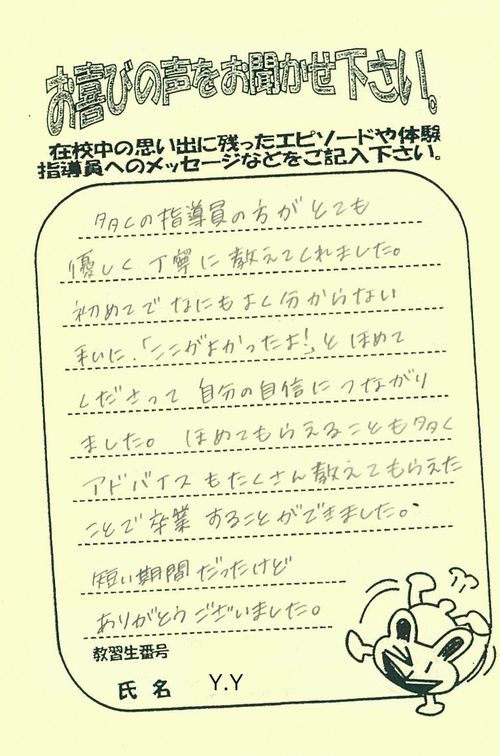 お喜びの声をお聞かせ下さい。
在校中の思い出に残ったエピソードや体験
指導員へのメッセージなどをご記入下さい。
多くの指導員の方がとても
優しく丁寧に教えてくれました。
初めてでなにもよく分からない
私に、「ここがよかったよ!」とほめて
くださって自分の自信につながり
ました。ほめてもらえることも多く
アドバイスもたくさん教えてもらえた
ことで卒業することができました。
短い期間だったけど
ありがとうございました。
教習生番号
氏名 Y.Y